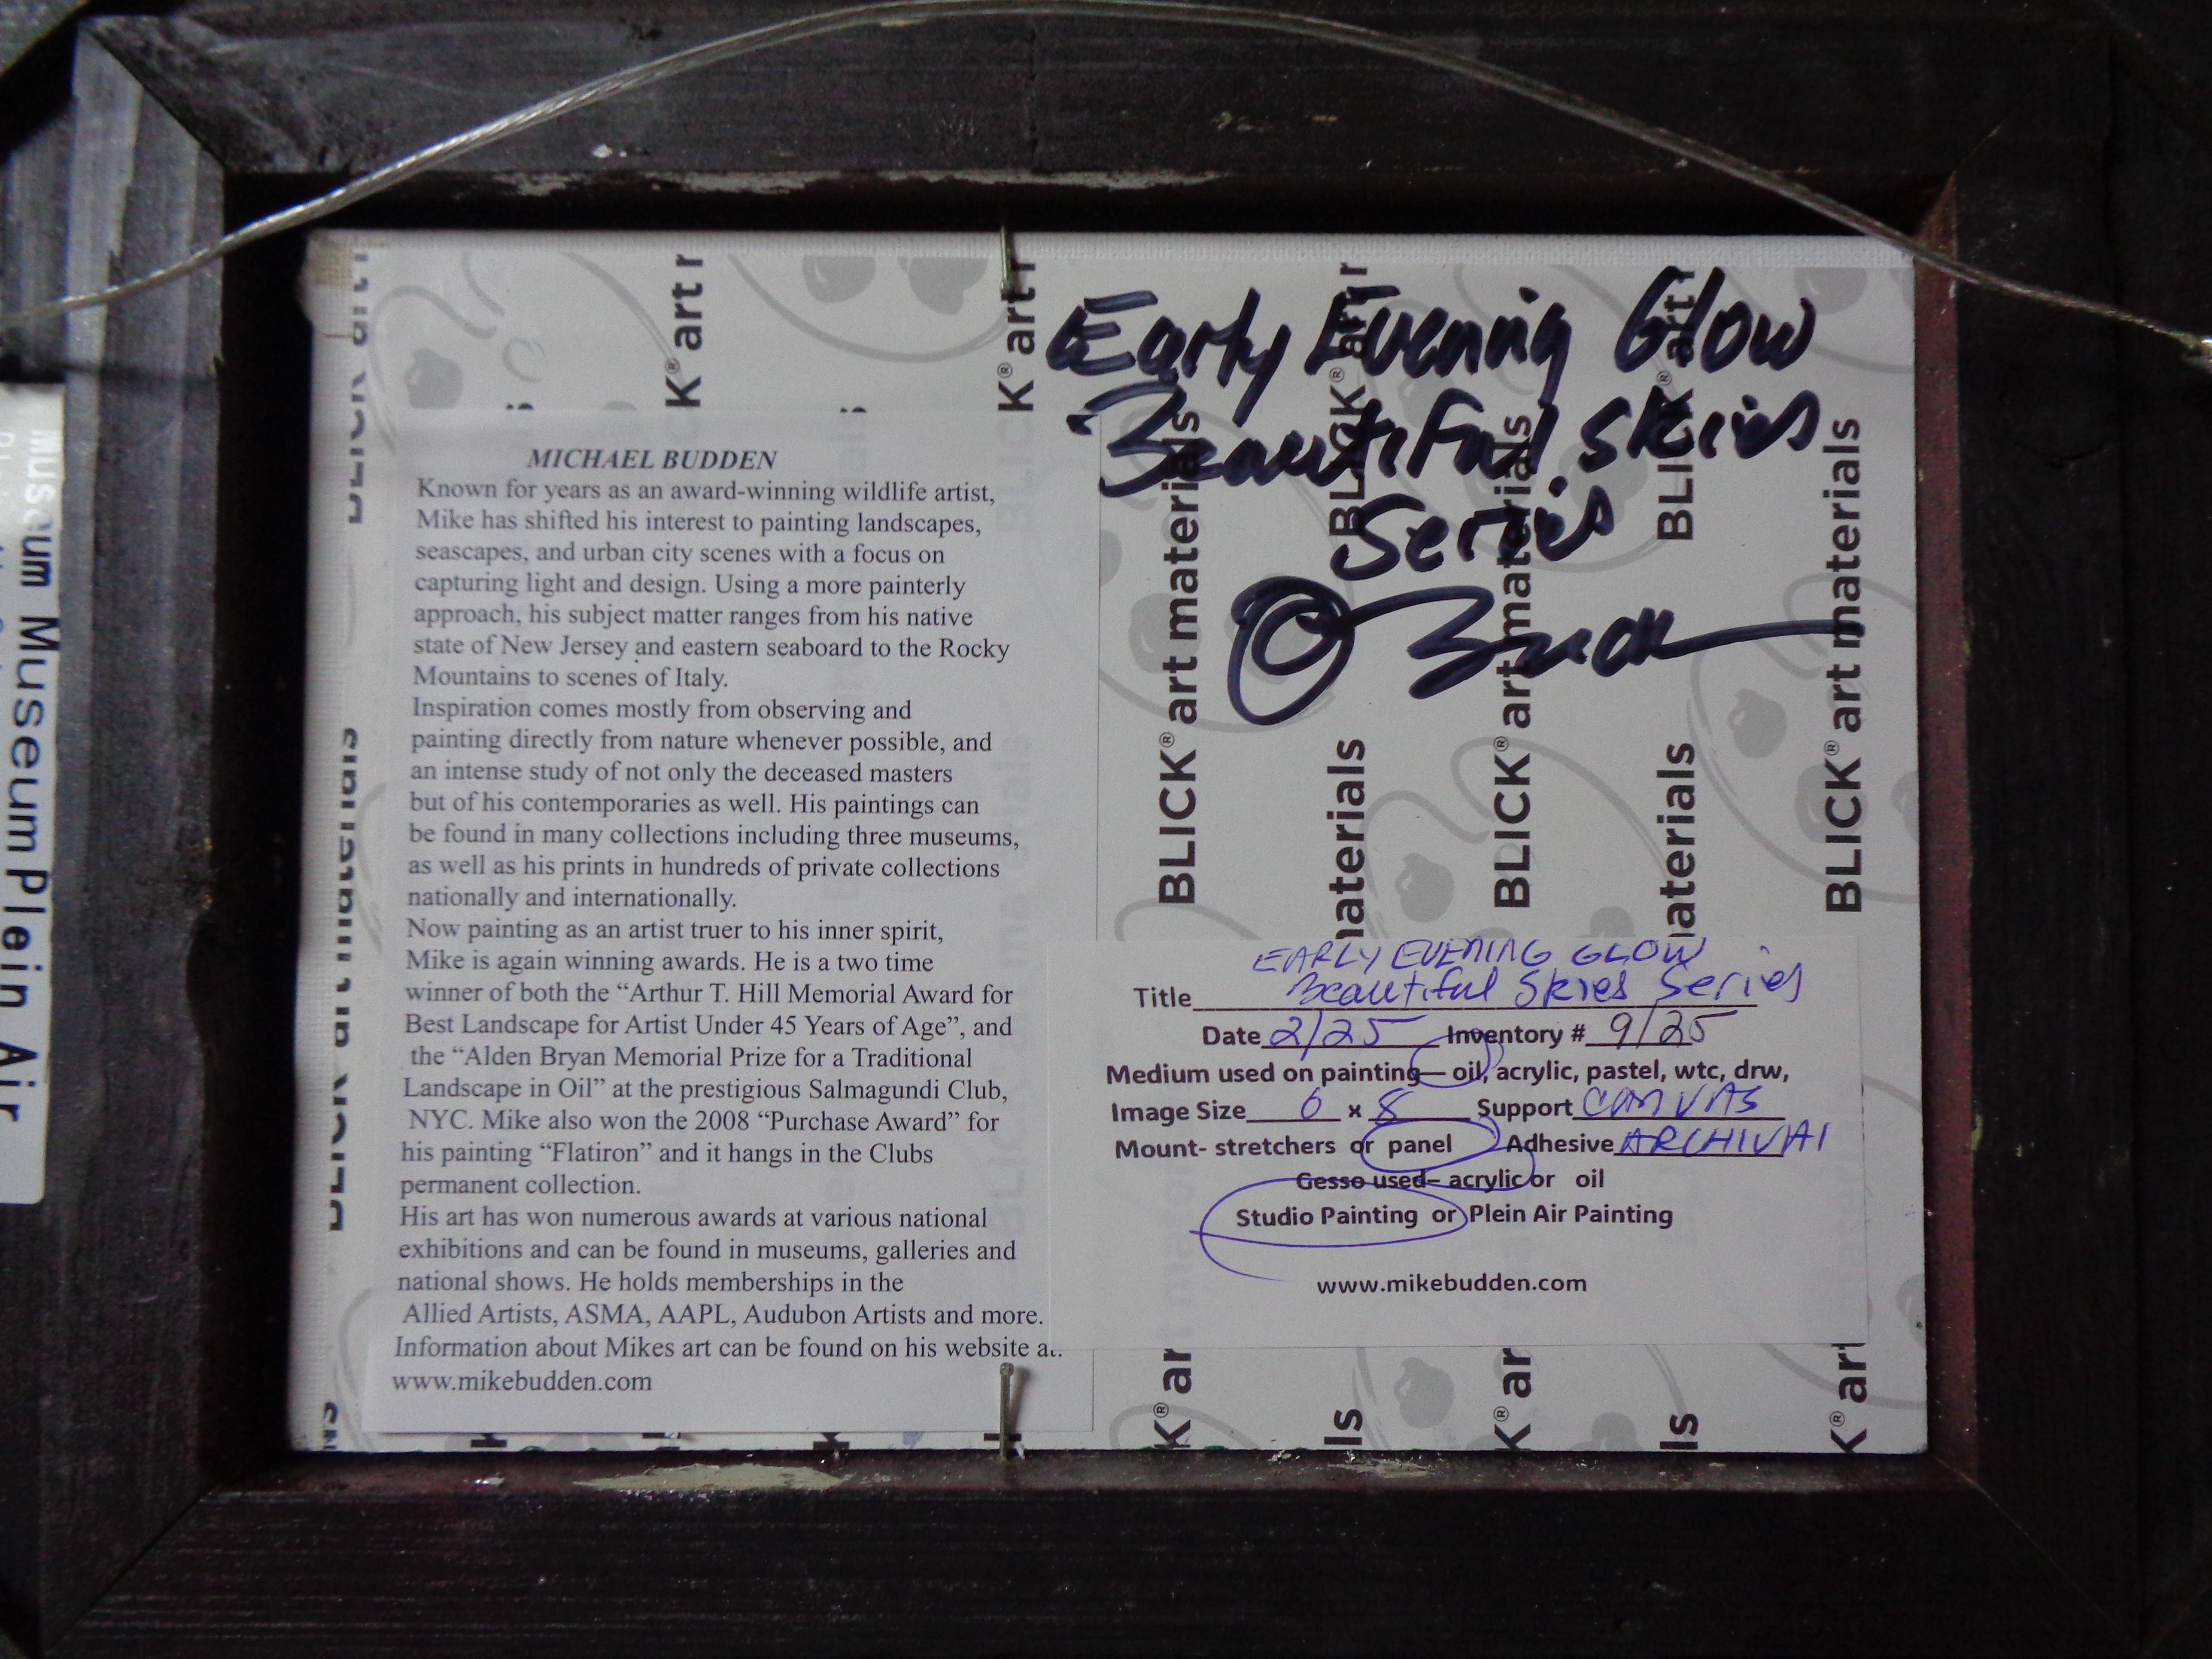 Museum Museum
Plein Air
MICHAEL BUDDEN
Known for years as an award-winning wildlife artist,
Mike has shifted his interest to painting landscapes,
seascapes, and urban city scenes with a focus on
capturing light and design. Using a more painterly
approach, his subject matter ranges from his native
state of New Jersey and eastern seaboard to the Rocky
Mountains to scenes of Italy.
Inspiration comes mostly from observing and
painting directly from nature whenever possible, and
an intense study of not only the deceased masters
but of his contemporaries as well. His paintings can
be found in many collections including three museums,
as well as his prints in hundreds of private collections
nationally and internationally.
Now painting as an artist truer to his inner spirit,
Mike is again winning awards. He is a two time
winner of both the “Arthur T. Hill Memorial Award for
Best Landscape for Artist Under 45 Years of Age”, and
the “Alden Bryan Memorial Prize for a Traditional
Landscape in Oil” at the prestigious Salmagundi Club,
NYC. Mike also won the 2008 “Purchase Award” for
his painting “Flatiron” and it hangs in the Clubs
permanent collection.
His art has won numerous awards at various national
exhibitions and can be found in museums, galleries and
national shows. He holds memberships in the
Allied Artists, ASMA, AAPL, Audubon Artists and more.
Information about Mikes art can be found on his website at.
www.mikebudden.com
Early Evening Glow
Beautiful Skies
Series
BLICK® art materials
BLICK® art materials
BLICK® art materials
EARLY EVENING GLOW
Title Beautiful Skies Series
Date 2/25 Inventory # 9/25
Medium used on painting— oil, acrylic, pastel, wtc, drw,
Image Size 6 x 8 Support CANVAS
Mount- stretchers or panel Adhesive ARCHIVAl
Gesso used– acrylic or oil
Studio Painting or Plein Air Painting
www.mikebudden.com